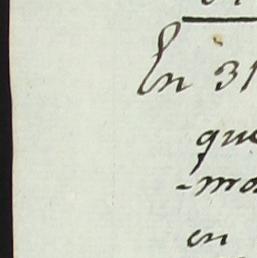 En 31
que
-mo
en